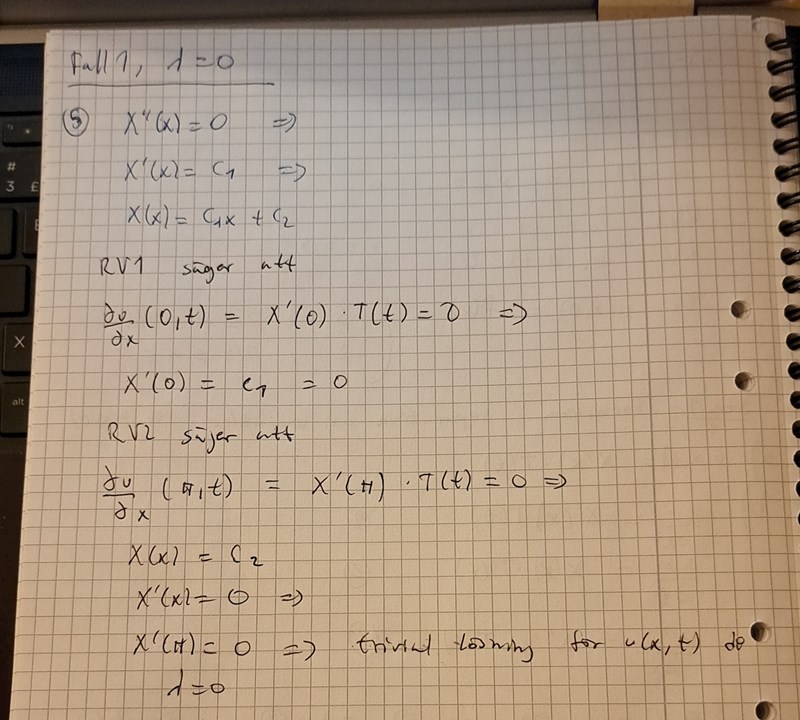 Fall 1, λ=0
⑤ X''(x) = 0 =>
X'(x) = C₁ =>
X(x) = C₁x + C₂
RV1 säger att
∂u/∂x (0,t) = X'(0) · T(t) = 0 =>
X'(0) = C₁ = 0
RV2 säger att
∂u/∂x (π,t) = X'(π) · T(t) = 0 =>
X(x) = C₂
X'(x) = 0 =>
X'(π) = 0 => trivial lösning för u(x,t) då
λ=0
#
3 £
X
alt